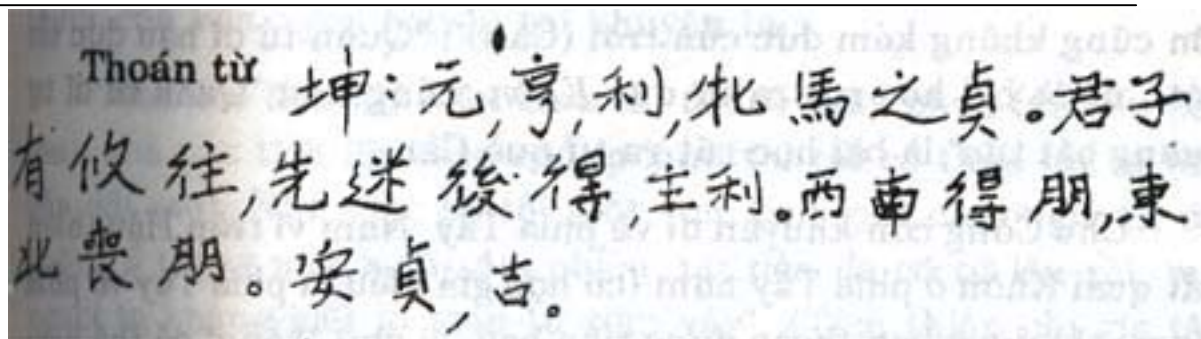 Thoán từ 坤:元,亨,利,牝馬之貞。君子
有攸往,先迷後得,主利。西南得朋,東
北喪朋。安貞,吉。